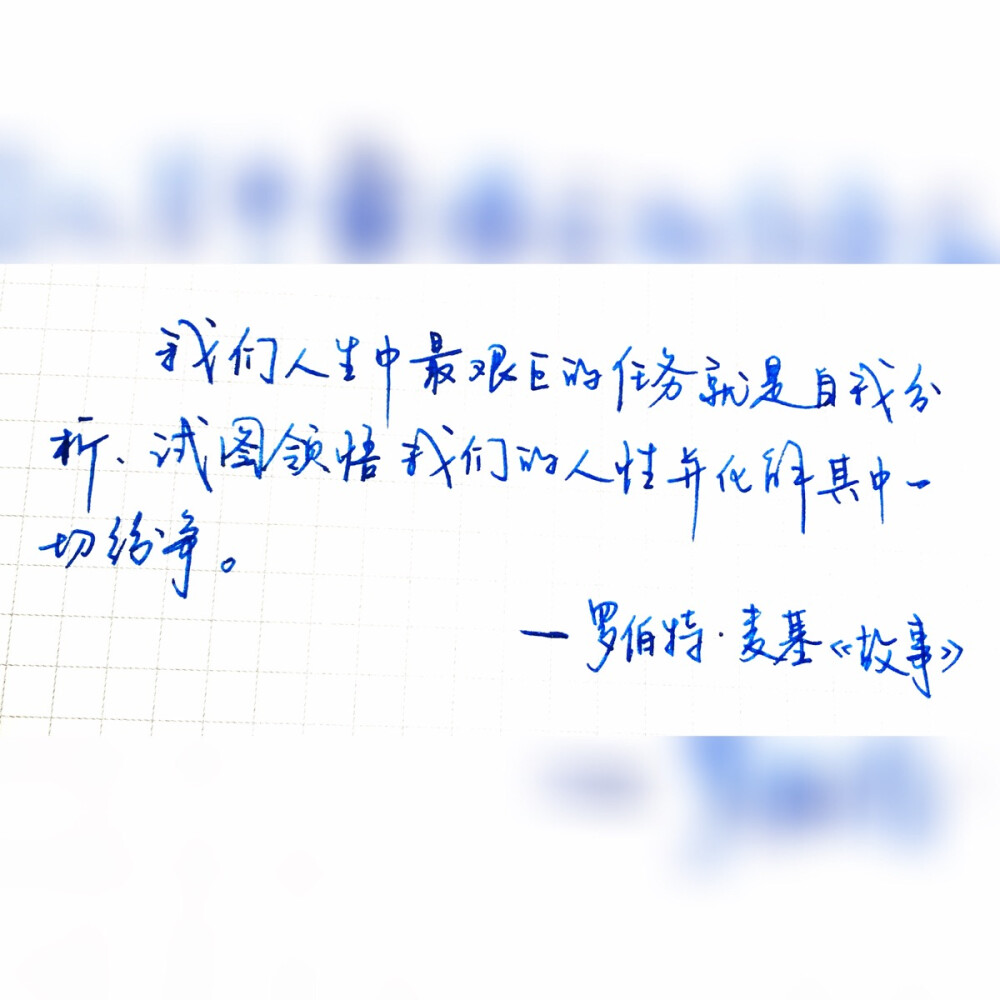 我们人生中最艰巨的任务就是自我分
析、试图领悟我们的人性并化解其中一
切纷争。
—罗伯特·麦基《故事》